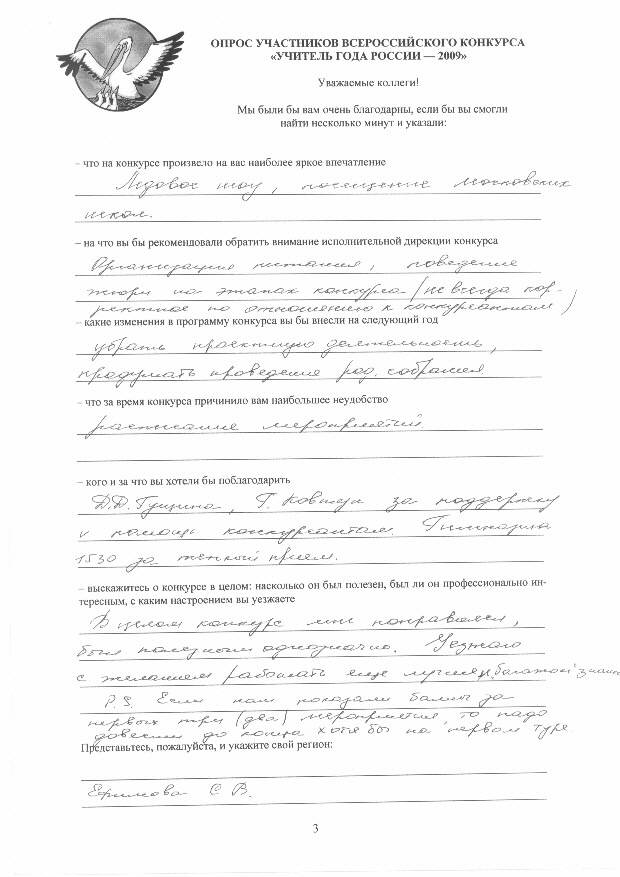 ОПРОС УЧАСТНИКОВ ВСЕРОССИЙСКОГО КОНКУРСА
«УЧИТЕЛЬ ГОДА РОССИИ — 2009»
Уважаемые коллеги!
Мы были бы вам очень благодарны, если бы вы смогли
найти несколько минут и указали:
– что на конкурсе произвело на вас наиболее яркое впечатление
Ледовое шоу, посещение московских
школ.
– на что вы бы рекомендовали обратить внимание исполнительной дирекции конкурса
Организация питания, поведение
жюри на этапах конкурса (не всегда кор-
ректное по отношению к конкурсантам)
– какие изменения в программу конкурса вы бы внесли на следующий год
убрать проектную деятельность,
продумать проведение род. собрания.
– что за время конкурса причинило вам наибольшее неудобство
расписание мероприятий.
– кого и за что вы хотели бы поблагодарить
Д.Д. Гущина, Г. за поддержку
и помощь конкурсантам. Гимназию
1530 за теплый прием.
– выскажитесь о конкурсе в целом: насколько он был полезен, был ли он профессионально ин-
тересным, с каким настроением вы уезжаете
В целом конкурс мне понравился,
был полезным однозначно. Уезжаю
с желанием работать еще лучше
P.S. Если нам показали баллы за
первых три (два) мероприятия, то надо
довести до конца хотя бы на первом туре
Представьтесь, пожалуйста, и укажите свой регион:
Ефимова С В.
3